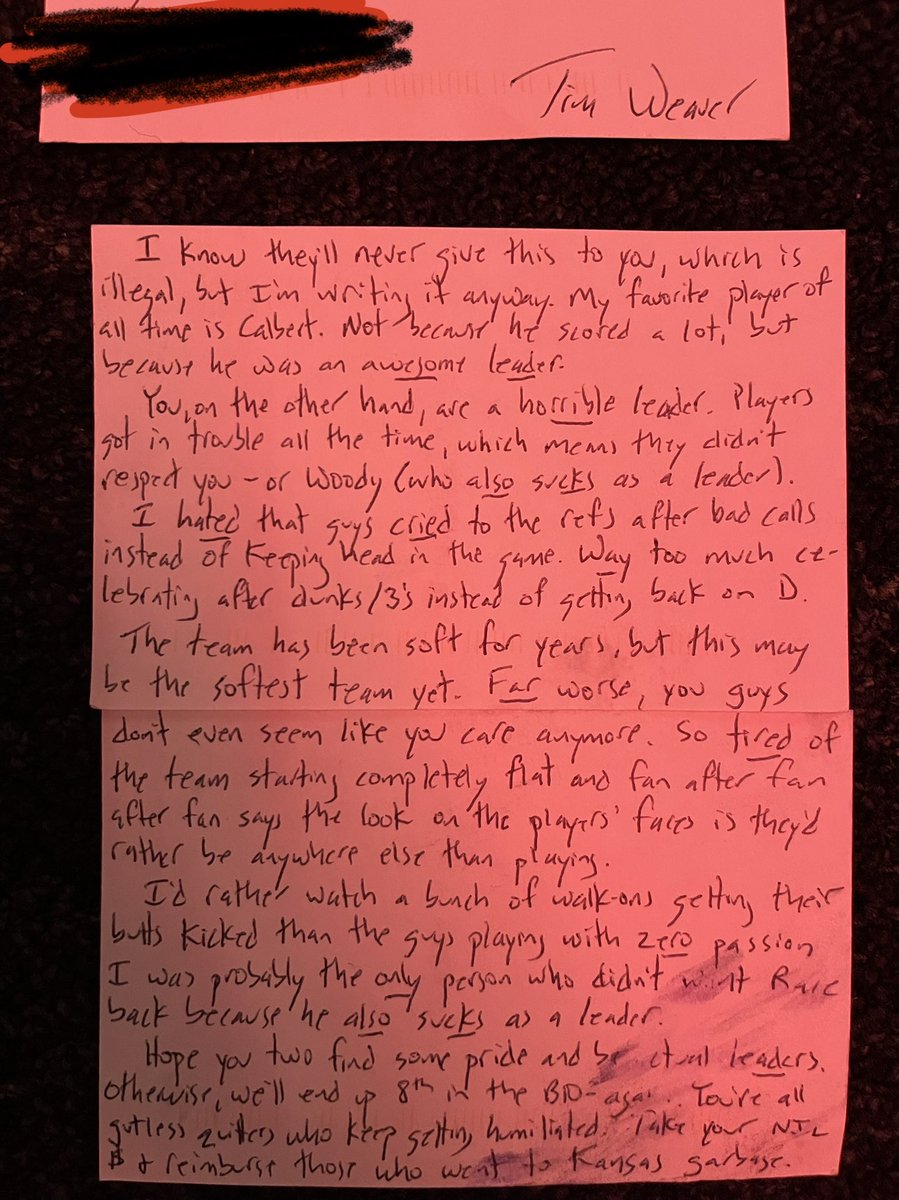 Tim Weaver
I know they'll never give this to you, which is
illegal, but I'm writing it anyway. My favorite player of
all time is Calbert. Not because he scored a lot, but
because he was an awesome leader.
You, on the other hand, are a horrible leader. Players
got in trouble all the time, which means they didn't
respect you - or Woody (who also sucks as a leader).
I hated that guys cried to the refs after bad calls
instead of keeping head in the game. Way too much ce-
lebrating after dunks/3's instead of getting back on D.
The team has been soft for years, but this may
be the softest team yet. Far worse, you guys
don't even seem like you care anymore. So tired of
the team starting completely flat and fan after fan
after fan says the look on the players' faces is they'd
rather be anywhere else than playing.
I'd rather watch a bunch of walk-ons getting their
butts kicked than the guys playing with zero passion
I was probably the only person who didn't want
back because he also sucks as a leader.
Hope you two find some pride and be leaders.
Otherwise, we'll end up 8th in the B10- You're all
gutless quitters who keep getting humiliated. Take your NIL
$ & reimburse those who went to Kansas garbage.